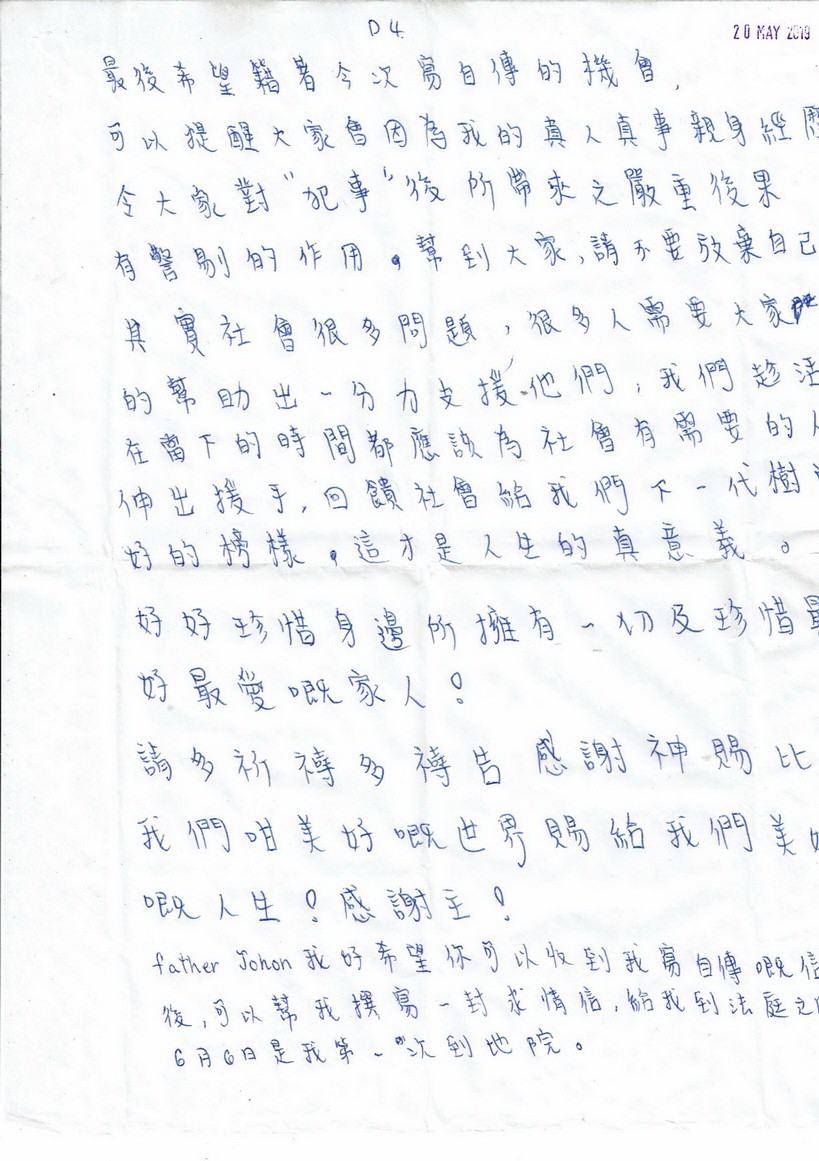 D4
20 MAY 2019
最後希望籍著今次寫自傳的機會,
可以提醒大家會因為我的真人真事親身經歷
令大家對"犯事"後所帶來之嚴重後果
有警剔的作用。幫到大家,請不要放棄自己
其實社會很多問題,很多人需要大家
的幫助出一分力支援他們,我們趁活
在當下的時間都應該為社會有需要的人
伸出援手,回饋社會給我們下一代樹
好的榜樣。這才是人生的真意義。
好好珍惜身邊所擁有一切及珍惜最
好最愛嘅家人!
請多祈禱多禱告感謝神賜比
我們咁美好嘅世界賜給我們美好
嘅人生!感謝主!
father Johon我好希望你可以收到我寫自傳嘅信
後,可以幫我撰寫一封求情信,給我到法庭之
6月6日是我第一次到地院。